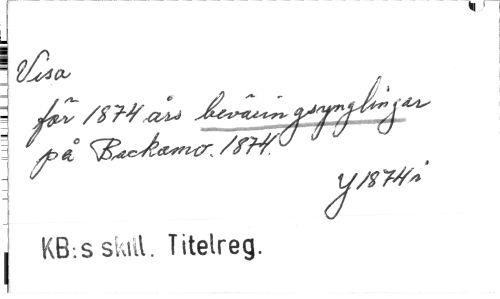 Visa
för 1874 års beväringsynglingar
på Backamo. 1874.
Y 1874 i
KB:s skill. Titelreg.